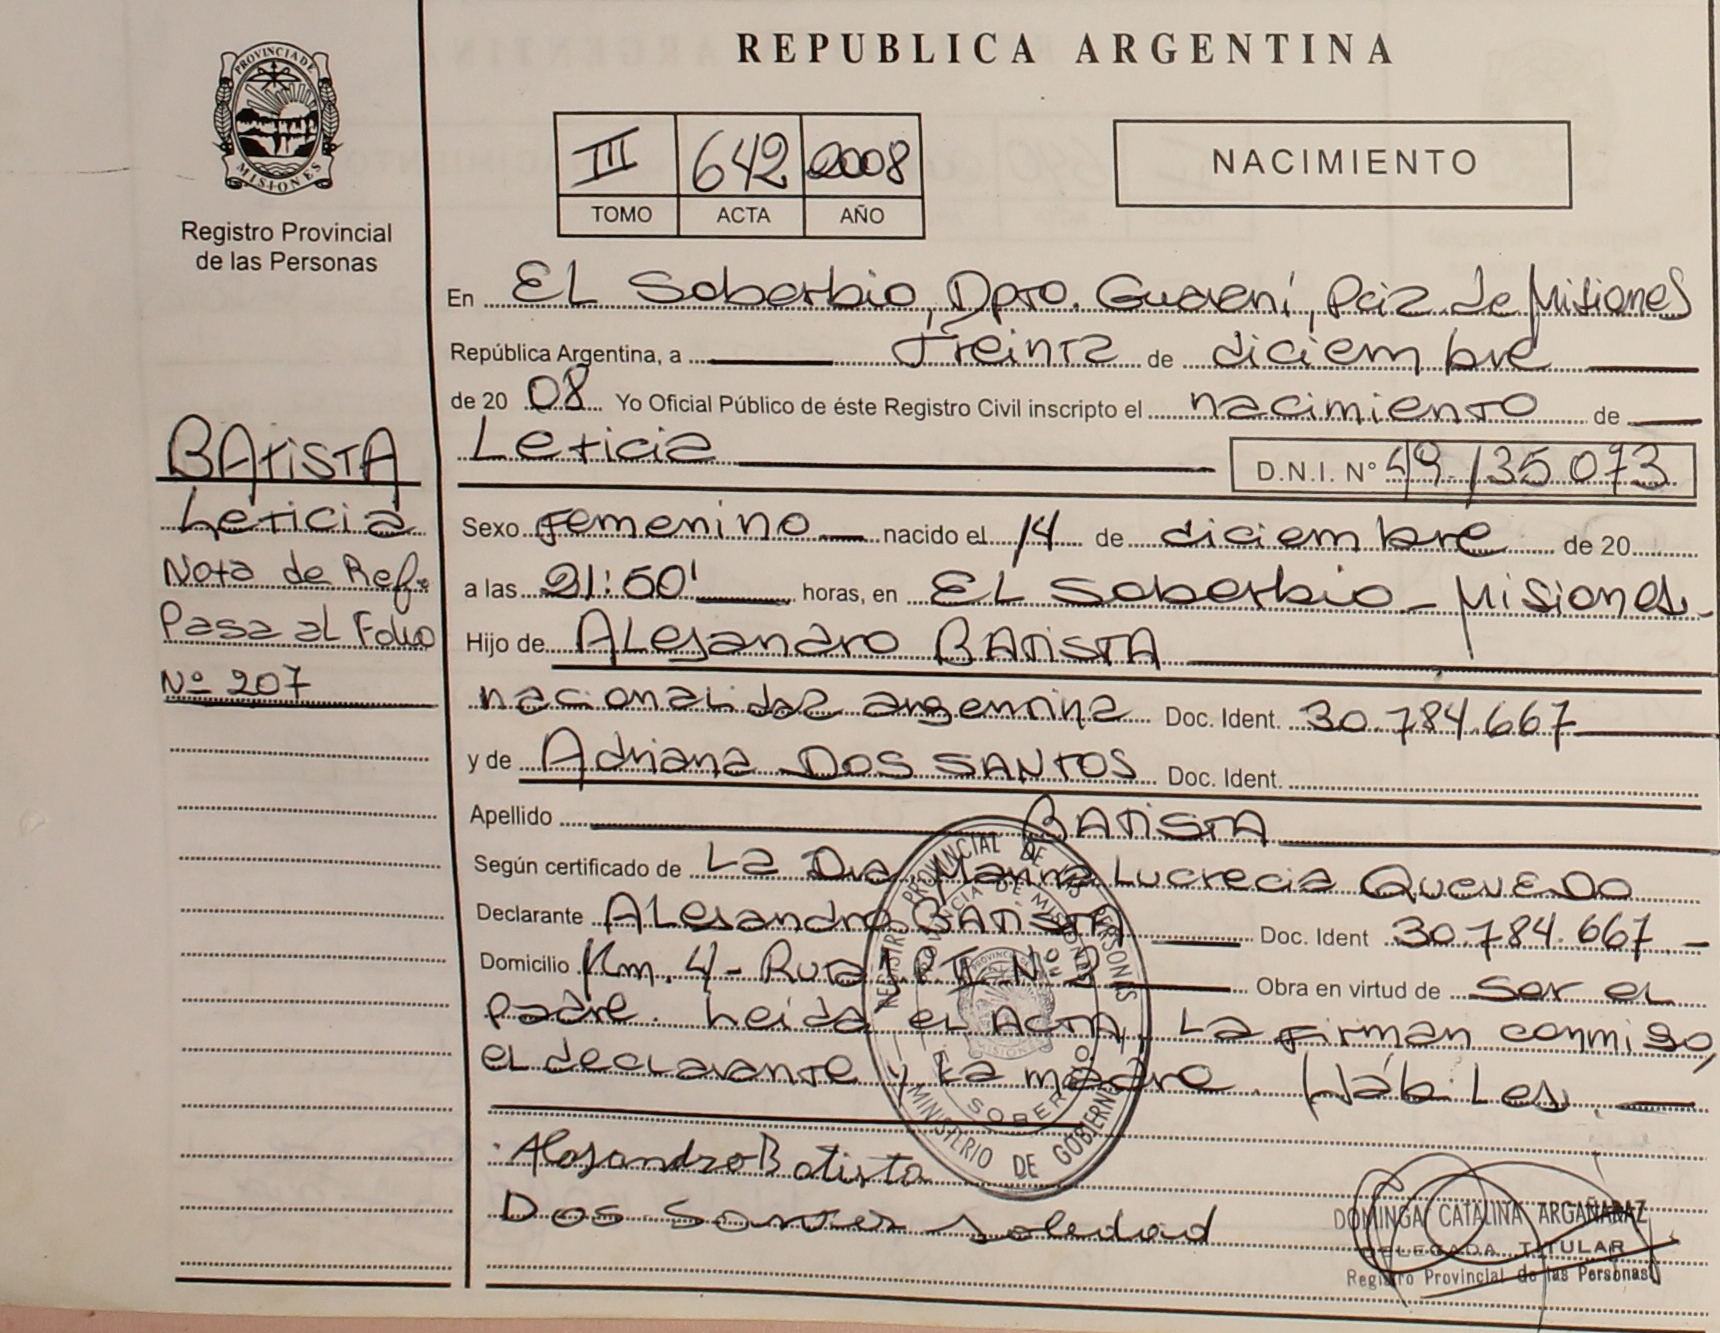 PROVINCIA DE
MISIONES
Registro Provincial
de las Personas
BATISTA
Leticia
Nota de Ref.
Pasa al Folio
Nº 207
REPUBLICA ARGENTINA
III 642 2008
TOMO ACTA AÑO
NACIMIENTO
En EL Soberbio, Dpto. Guaraní, Pcia. de Misiones
República Argentina, a Treinta de diciembre
de 2008 Yo Oficial Público de éste Registro Civil inscripto el nacimiento de
Leticia D.N.I. Nº 49.135.073
Sexo femenino nacido el 14 de diciembre de 20
a las 21:50' horas, en EL Soberbio - Misiones.-
Hijo de ALejandro BATISTA
nacionalidad argentina Doc. Ident. 30.784.667
y de Adriana DOS SANTOS Doc. Ident.
Apellido BATISTA
Según certificado de La Dra. Marina Lucrecia QUEVEDO
Declarante ALejandro BATISTA Doc. Ident 30.784.667 -
Domicilio Km. 4 - Ruta P. Nº 2 Obra en virtud de ser el
padre. Leida el ACTA, La firman conmigo,
el declarante y La madre. Hábiles.
REGISTRO PROVINCIAL DE LAS PERSONAS
PROVINCIA DE MISIONES
SOBERBIO
MINISTERIO DE GOBIERNO
Alejandro Batista
Dos Santos Soledad
DOMINGA CATALINA ARGAÑARAZ
DELEGADA TITULAR
Registro Provincial de las Personas